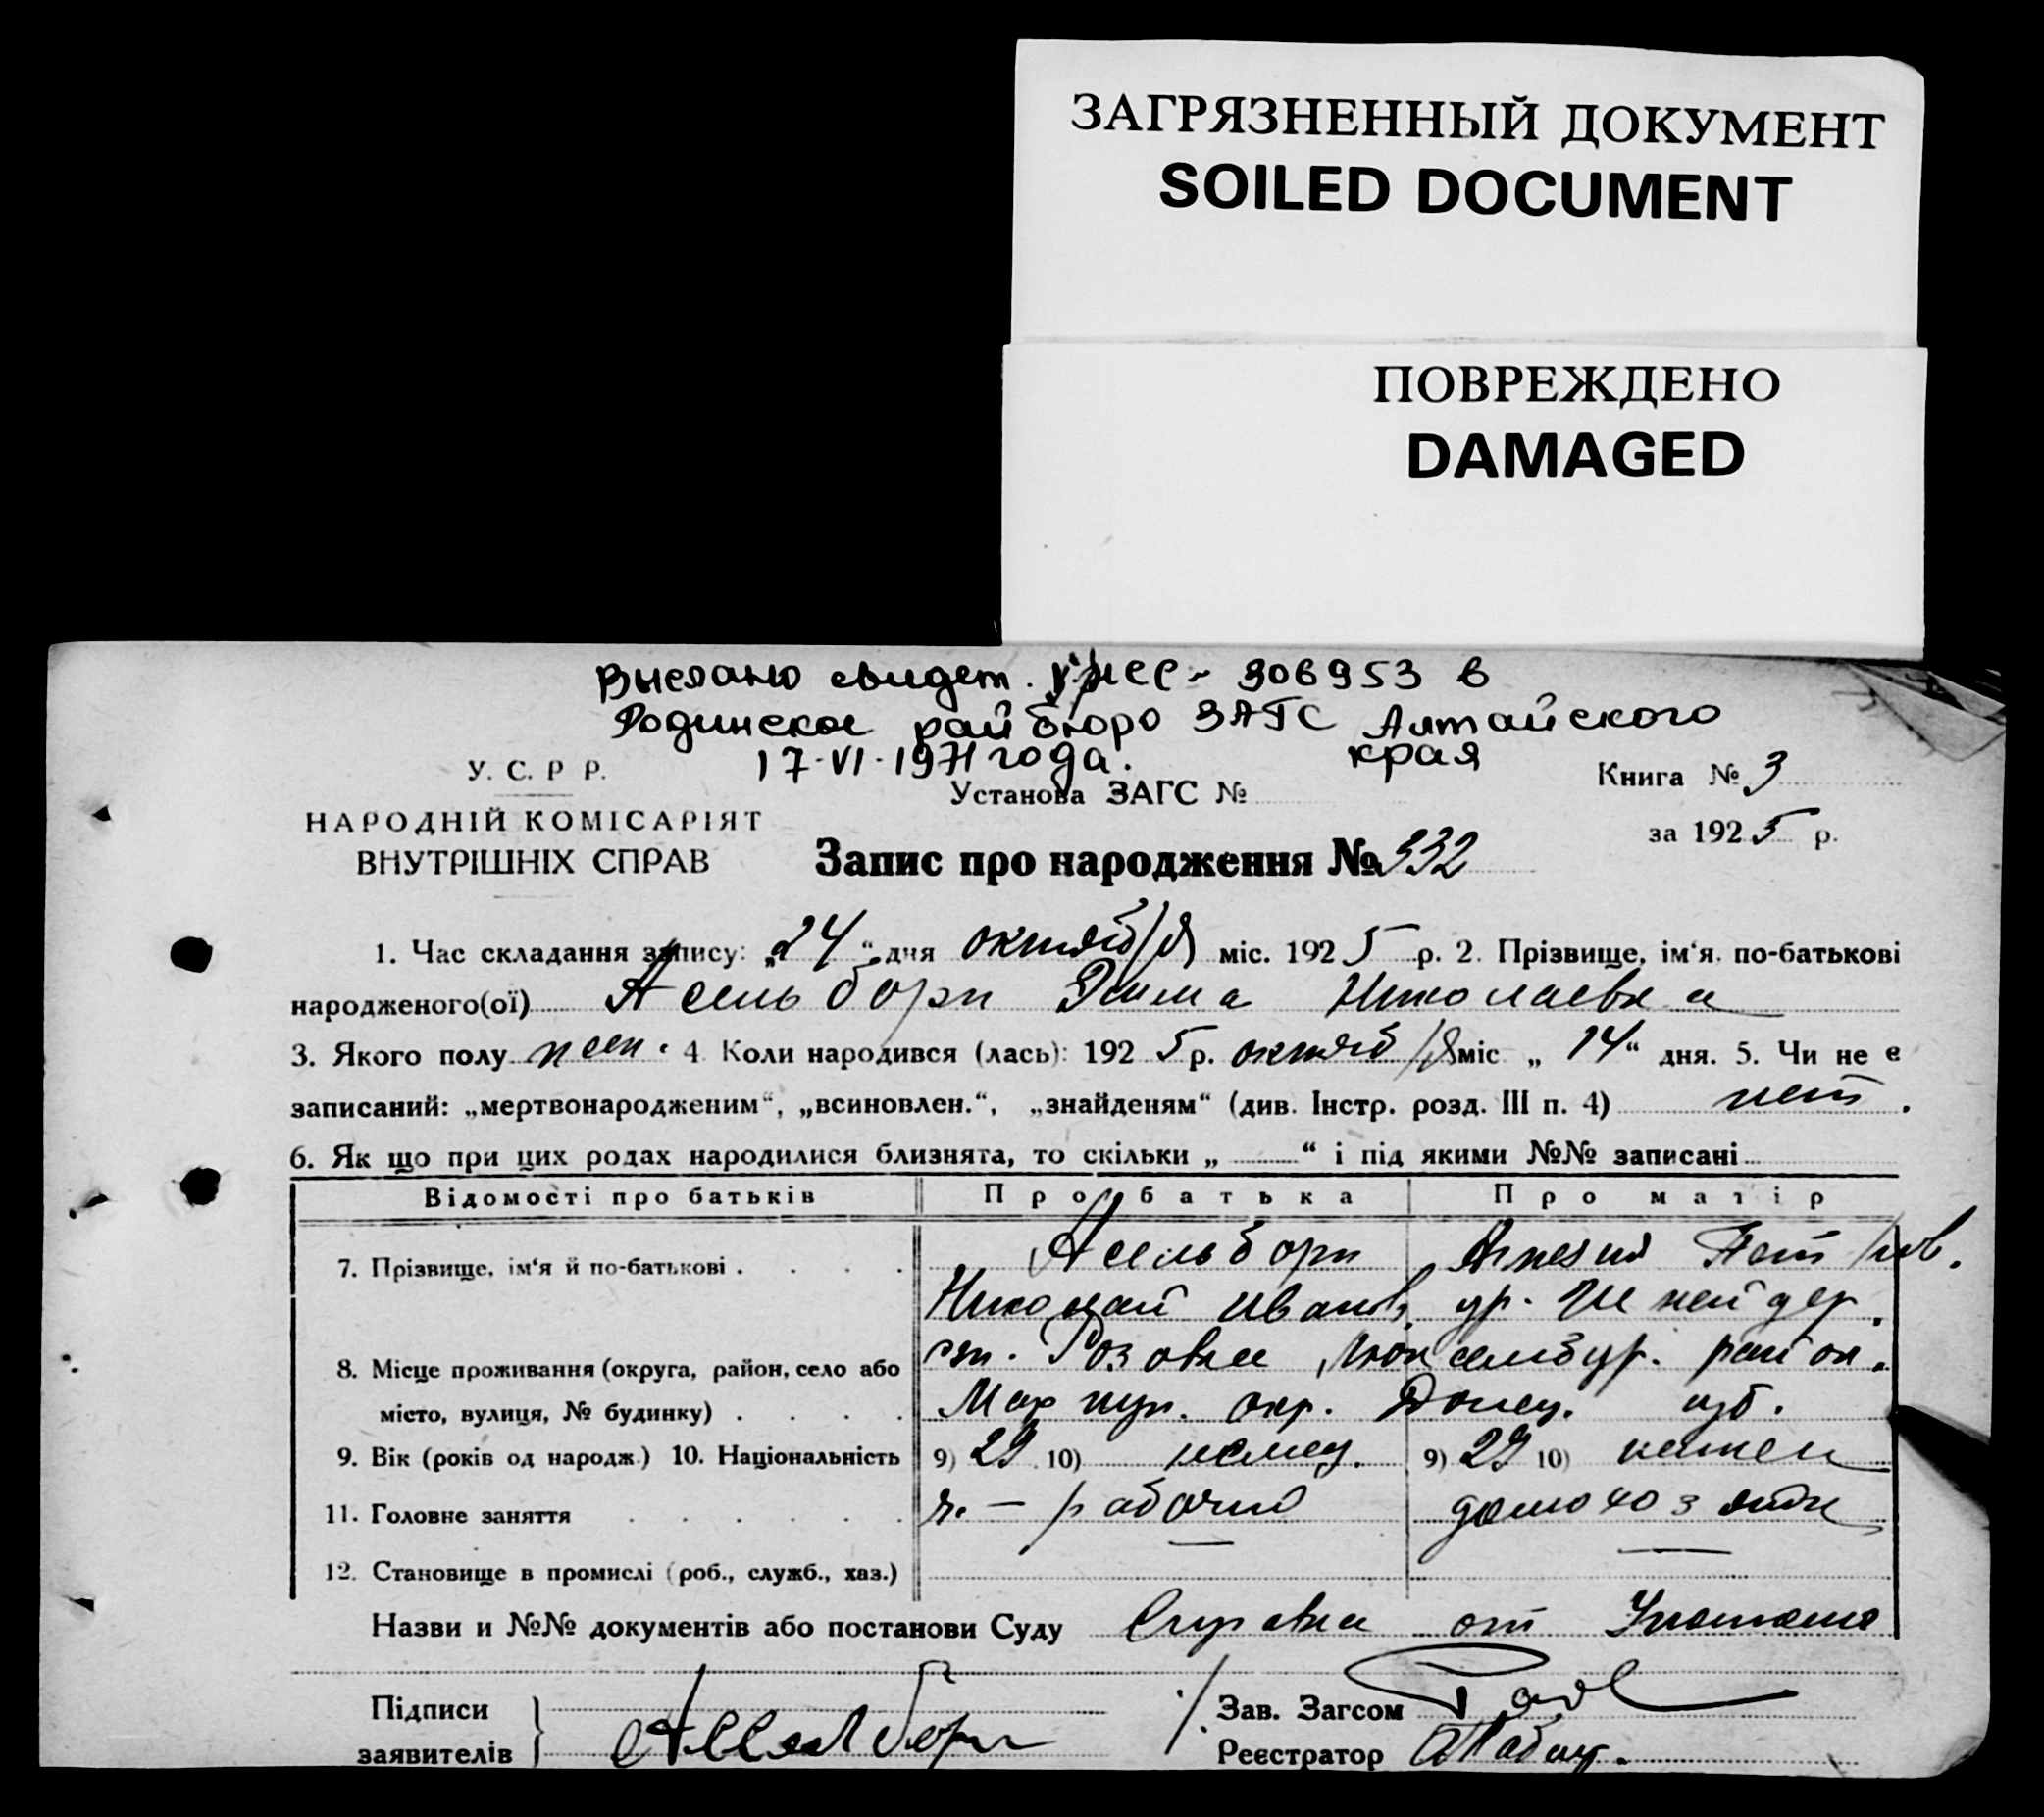 ЗАГРЯЗНЕННЫЙ ДОКУМЕНТ
SOILED DOCUMENT
ПОВРЕЖДЕНО
DAMAGED
Выслано свидет. 306953 в
Родинское райбюро ЗАГС Алтайского
края
17-VI-1971 года.
У. С. Р Р.
НАРОДНІЙ КОМІСАРІЯТ
ВНУТРІШНІХ СПРАВ
Установа ЗАГС №
Книга № 3
за 1925 р.
Запис про народження № 332
1. Час складання запису: „24“ дня октября міс. 1925 р. 2. Прізвище, ім‘я, по-батькові
народженого(ої) Асельборн Эмма Николаевна
3. Якого полу жен. 4 Коли народився (лась): 1925 р. октября міс „14“ дня. 5. Чи не є
записаний: „мертвонародженим“, „всиновлен.“, „знайденям“ (див. Інстр. розд. III п. 4) нет.
6. Як що при цих родах народилися близнята, то скільки „ “ і під якими №№ записані
Відомості про батьків Про батька Про матір
7. Прізвище, ім‘я й по-батькові . . . . Асельборн Петров.
Николай Иванов. ур. Шнейдер.
8. Місце проживання (округа, район, село або ст. Розовка Люксембур. район.
місто, вулиця, № будинку) . . . . Мариуп. окр. Донец. губ.
9. Вік (років од народж.) 10. Національність 9) 29 10) немец. 9) 29 10) немец
11. Головне заняття . . . . . . ч. — рабочий домохозяйк
12. Становище в промислі (роб., служб., хаз.)
Назви и №№ документів або постанови Суду Справка от
Підписи
заявителів Асельборн
Зав. Загсом
Реєстратор